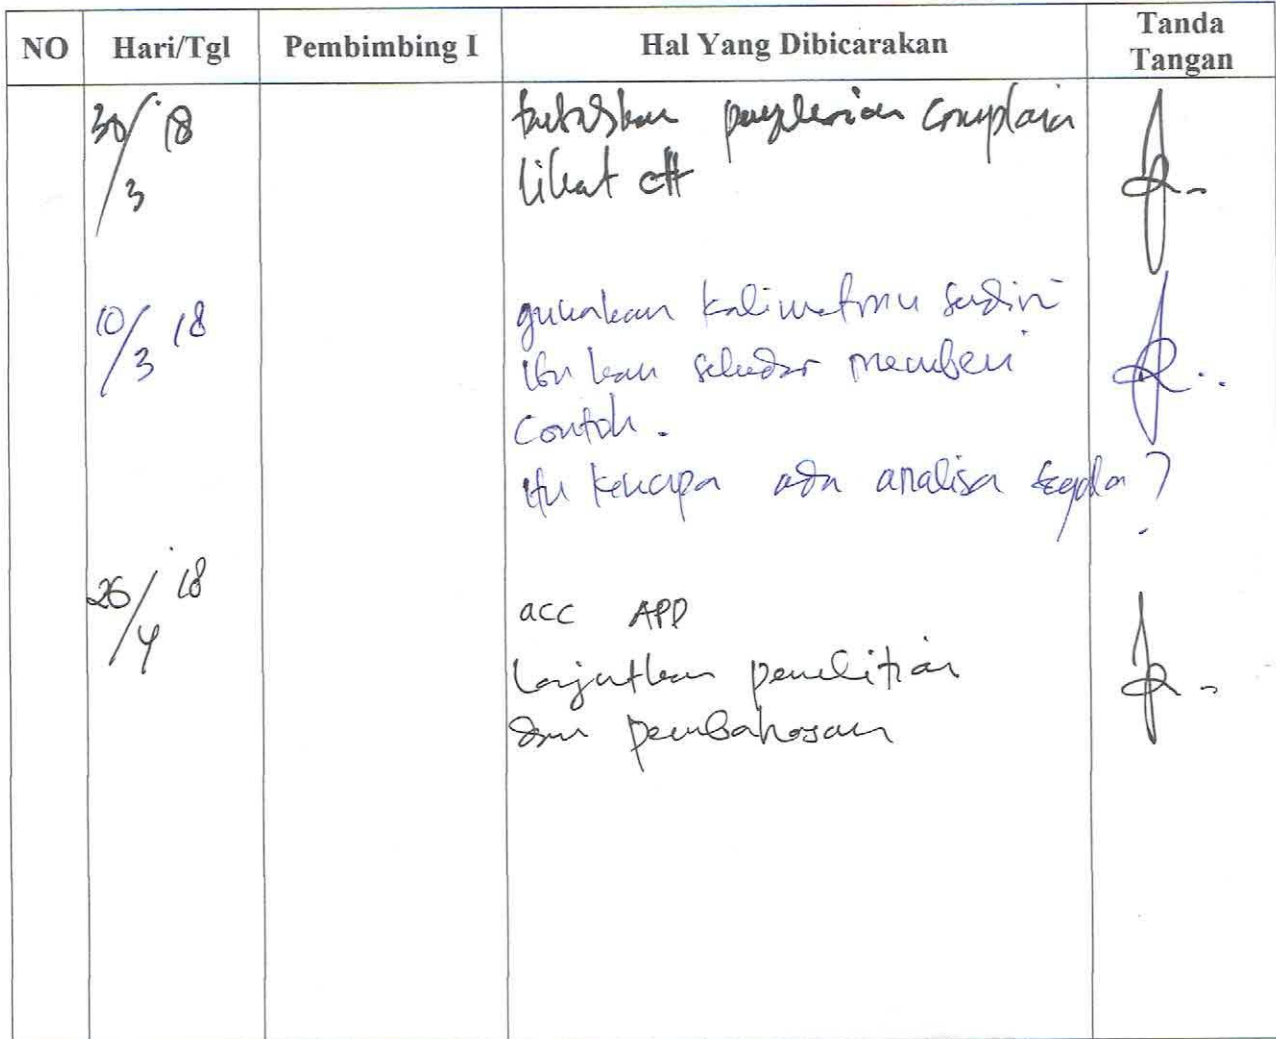 NO Hari/Tgl Pembimbing I Hal Yang Dibicarakan Tanda Tangan
30/3 18 complain
lihat ctt
10/3 18 gunakan kalimatmu sendiri
ibu kan sekedar memberi
contoh.
itu kenapa ada analisa segala?
26/4 18 acc APD
Lanjutkan penelitian
dan pembahasan